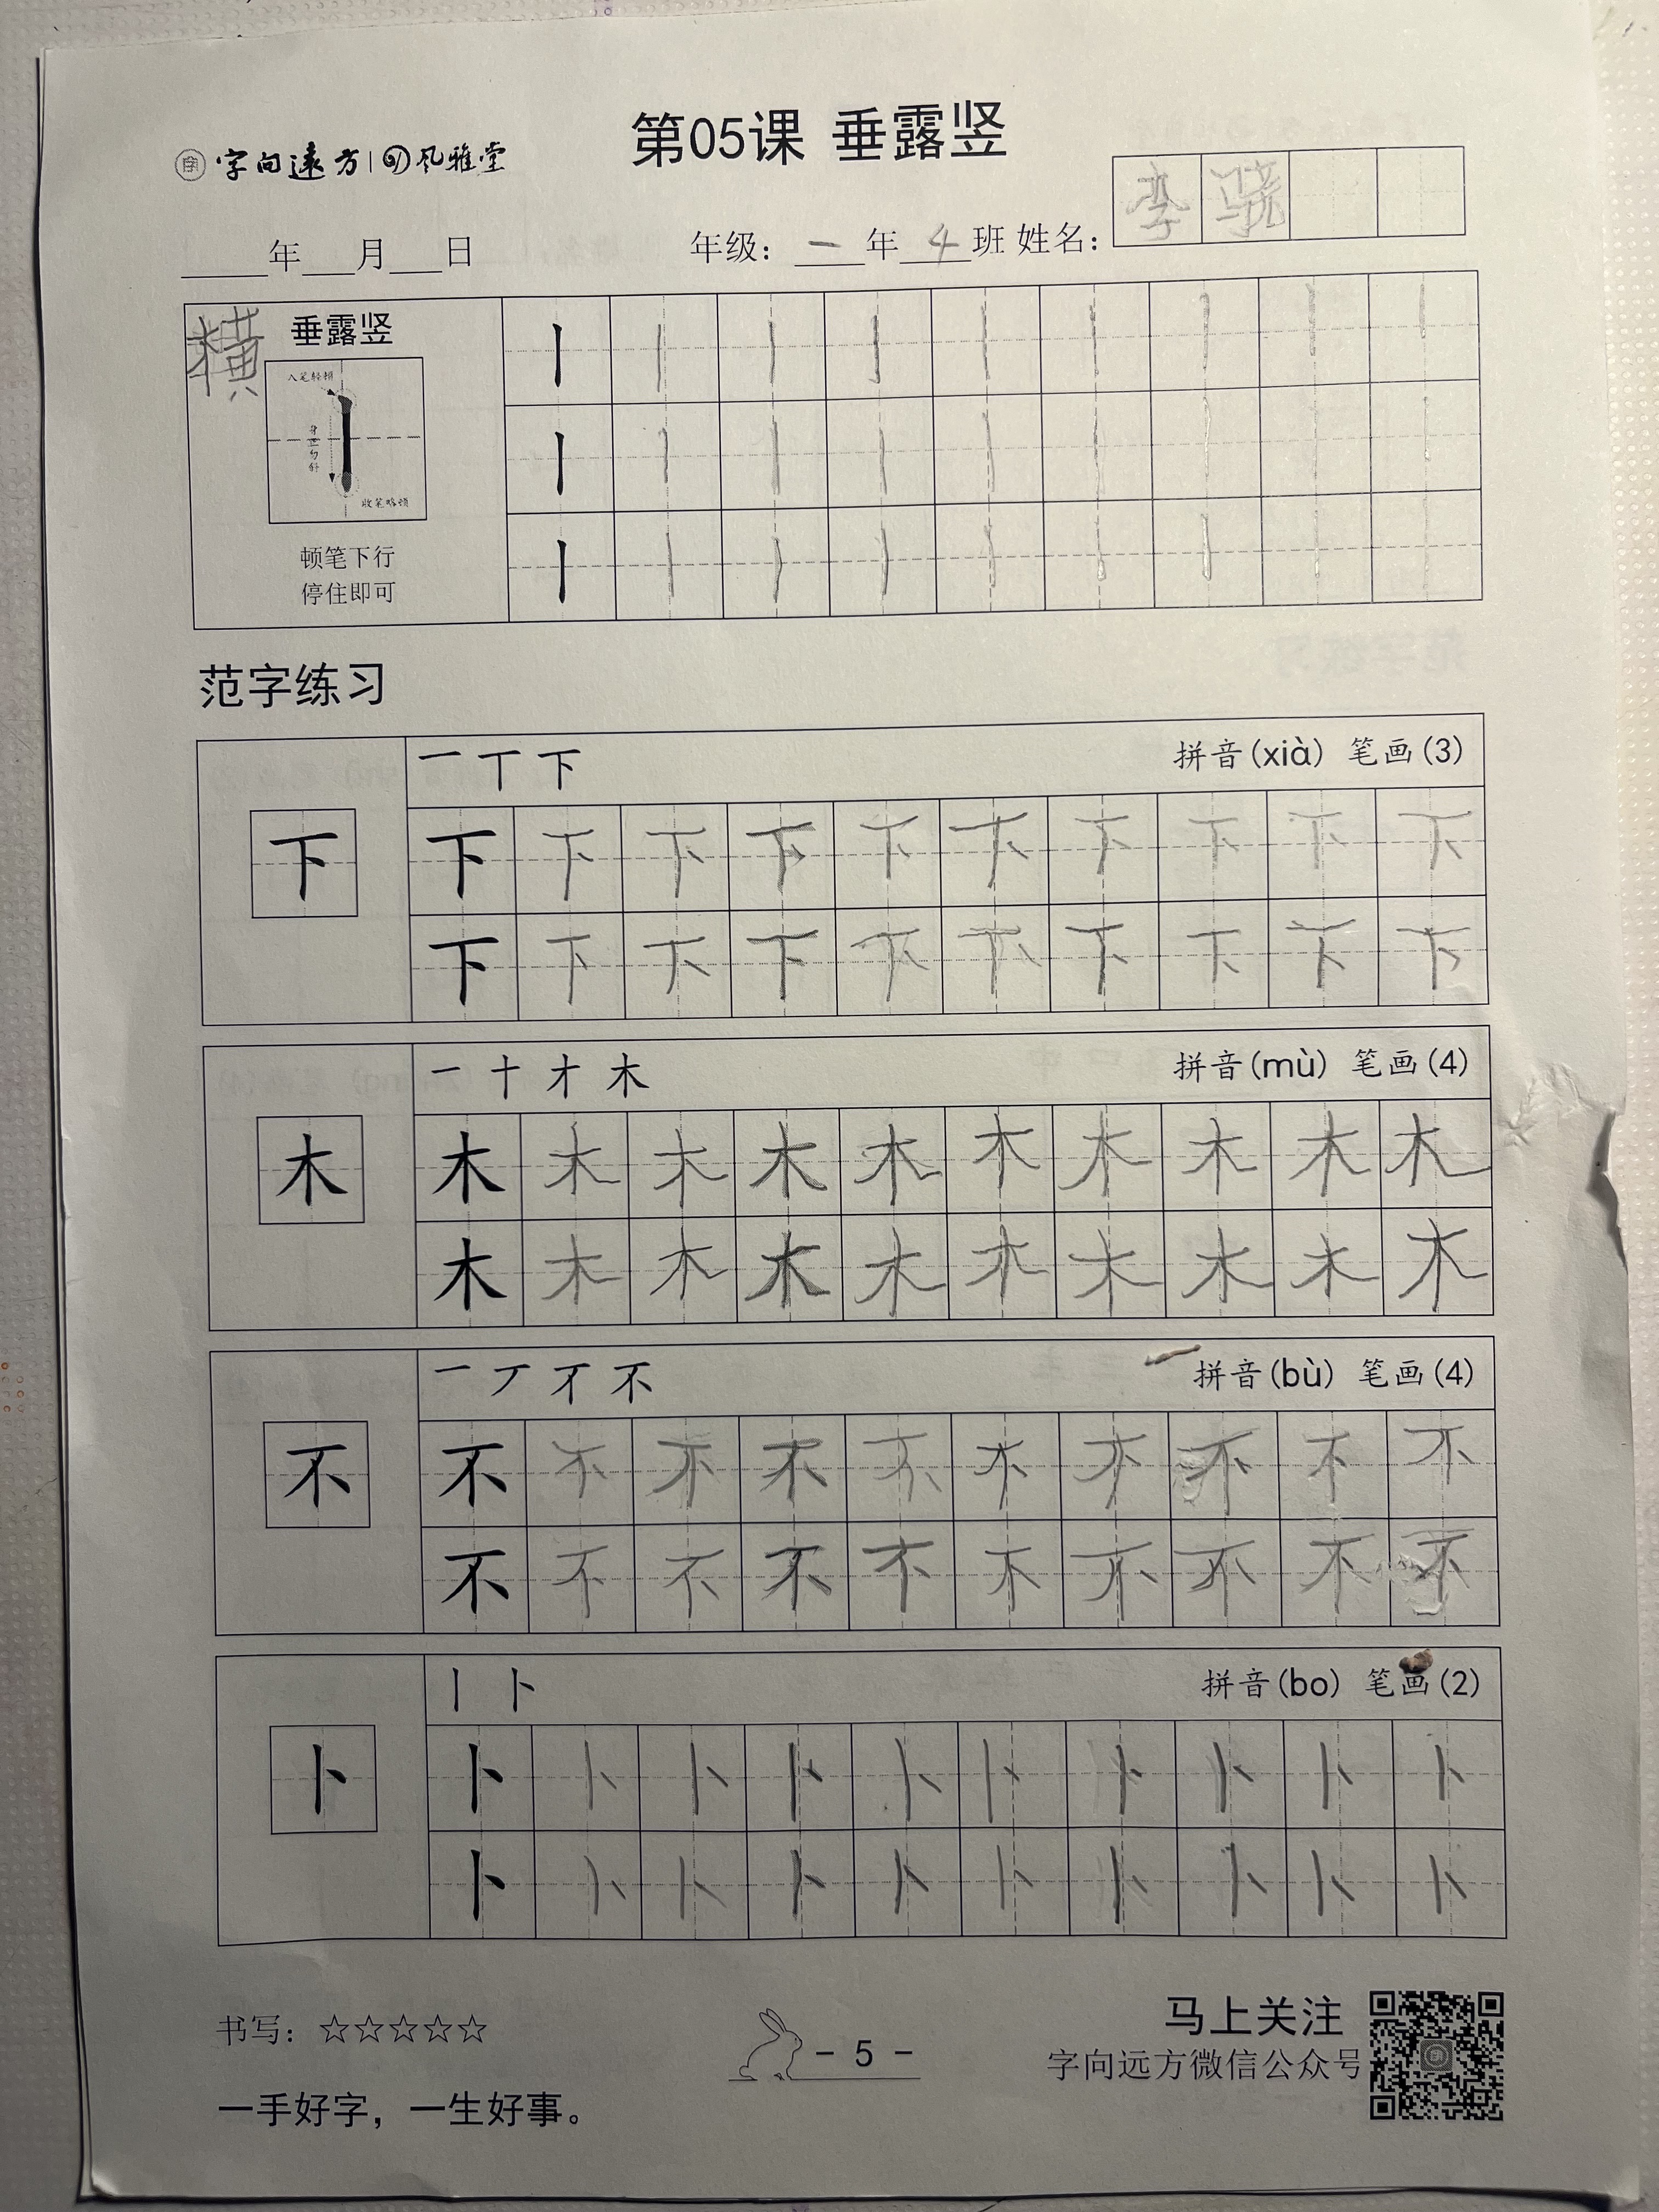 第05课 垂露竖
字向遠方 风雅堂
李骁
年 月 日 年级：一年4班 姓名：
横 垂露竖
入笔轻顿
身正勿斜
收笔略顿
顿笔下行
停住即可
范字练习
一 丅 下 拼音(xià) 笔画(3)
下 下 下 下 下 下 下 下 下 下 下
下 下 下 下 下 下 下 下 下 下
一 十 才 木 拼音(mù) 笔画(4)
木 木 木 木 木 木 木 木 木 木 木
木 木 木 木 木 木 木 木 木 木
一 丆 不 拼音(bù) 笔画(4)
不 不 不 不 不 不 不 不 不 不 不
不 不 不 不 不 不 不 不 不 不
丨 卜 拼音(bo) 笔画(2)
卜 卜 卜 卜 卜 卜 卜 卜 卜 卜 卜
卜 卜 卜 卜 卜 卜 卜 卜 卜 卜
书写：☆☆☆☆☆
- 5 -
马上关注
字向远方微信公众号
一手好字，一生好事。